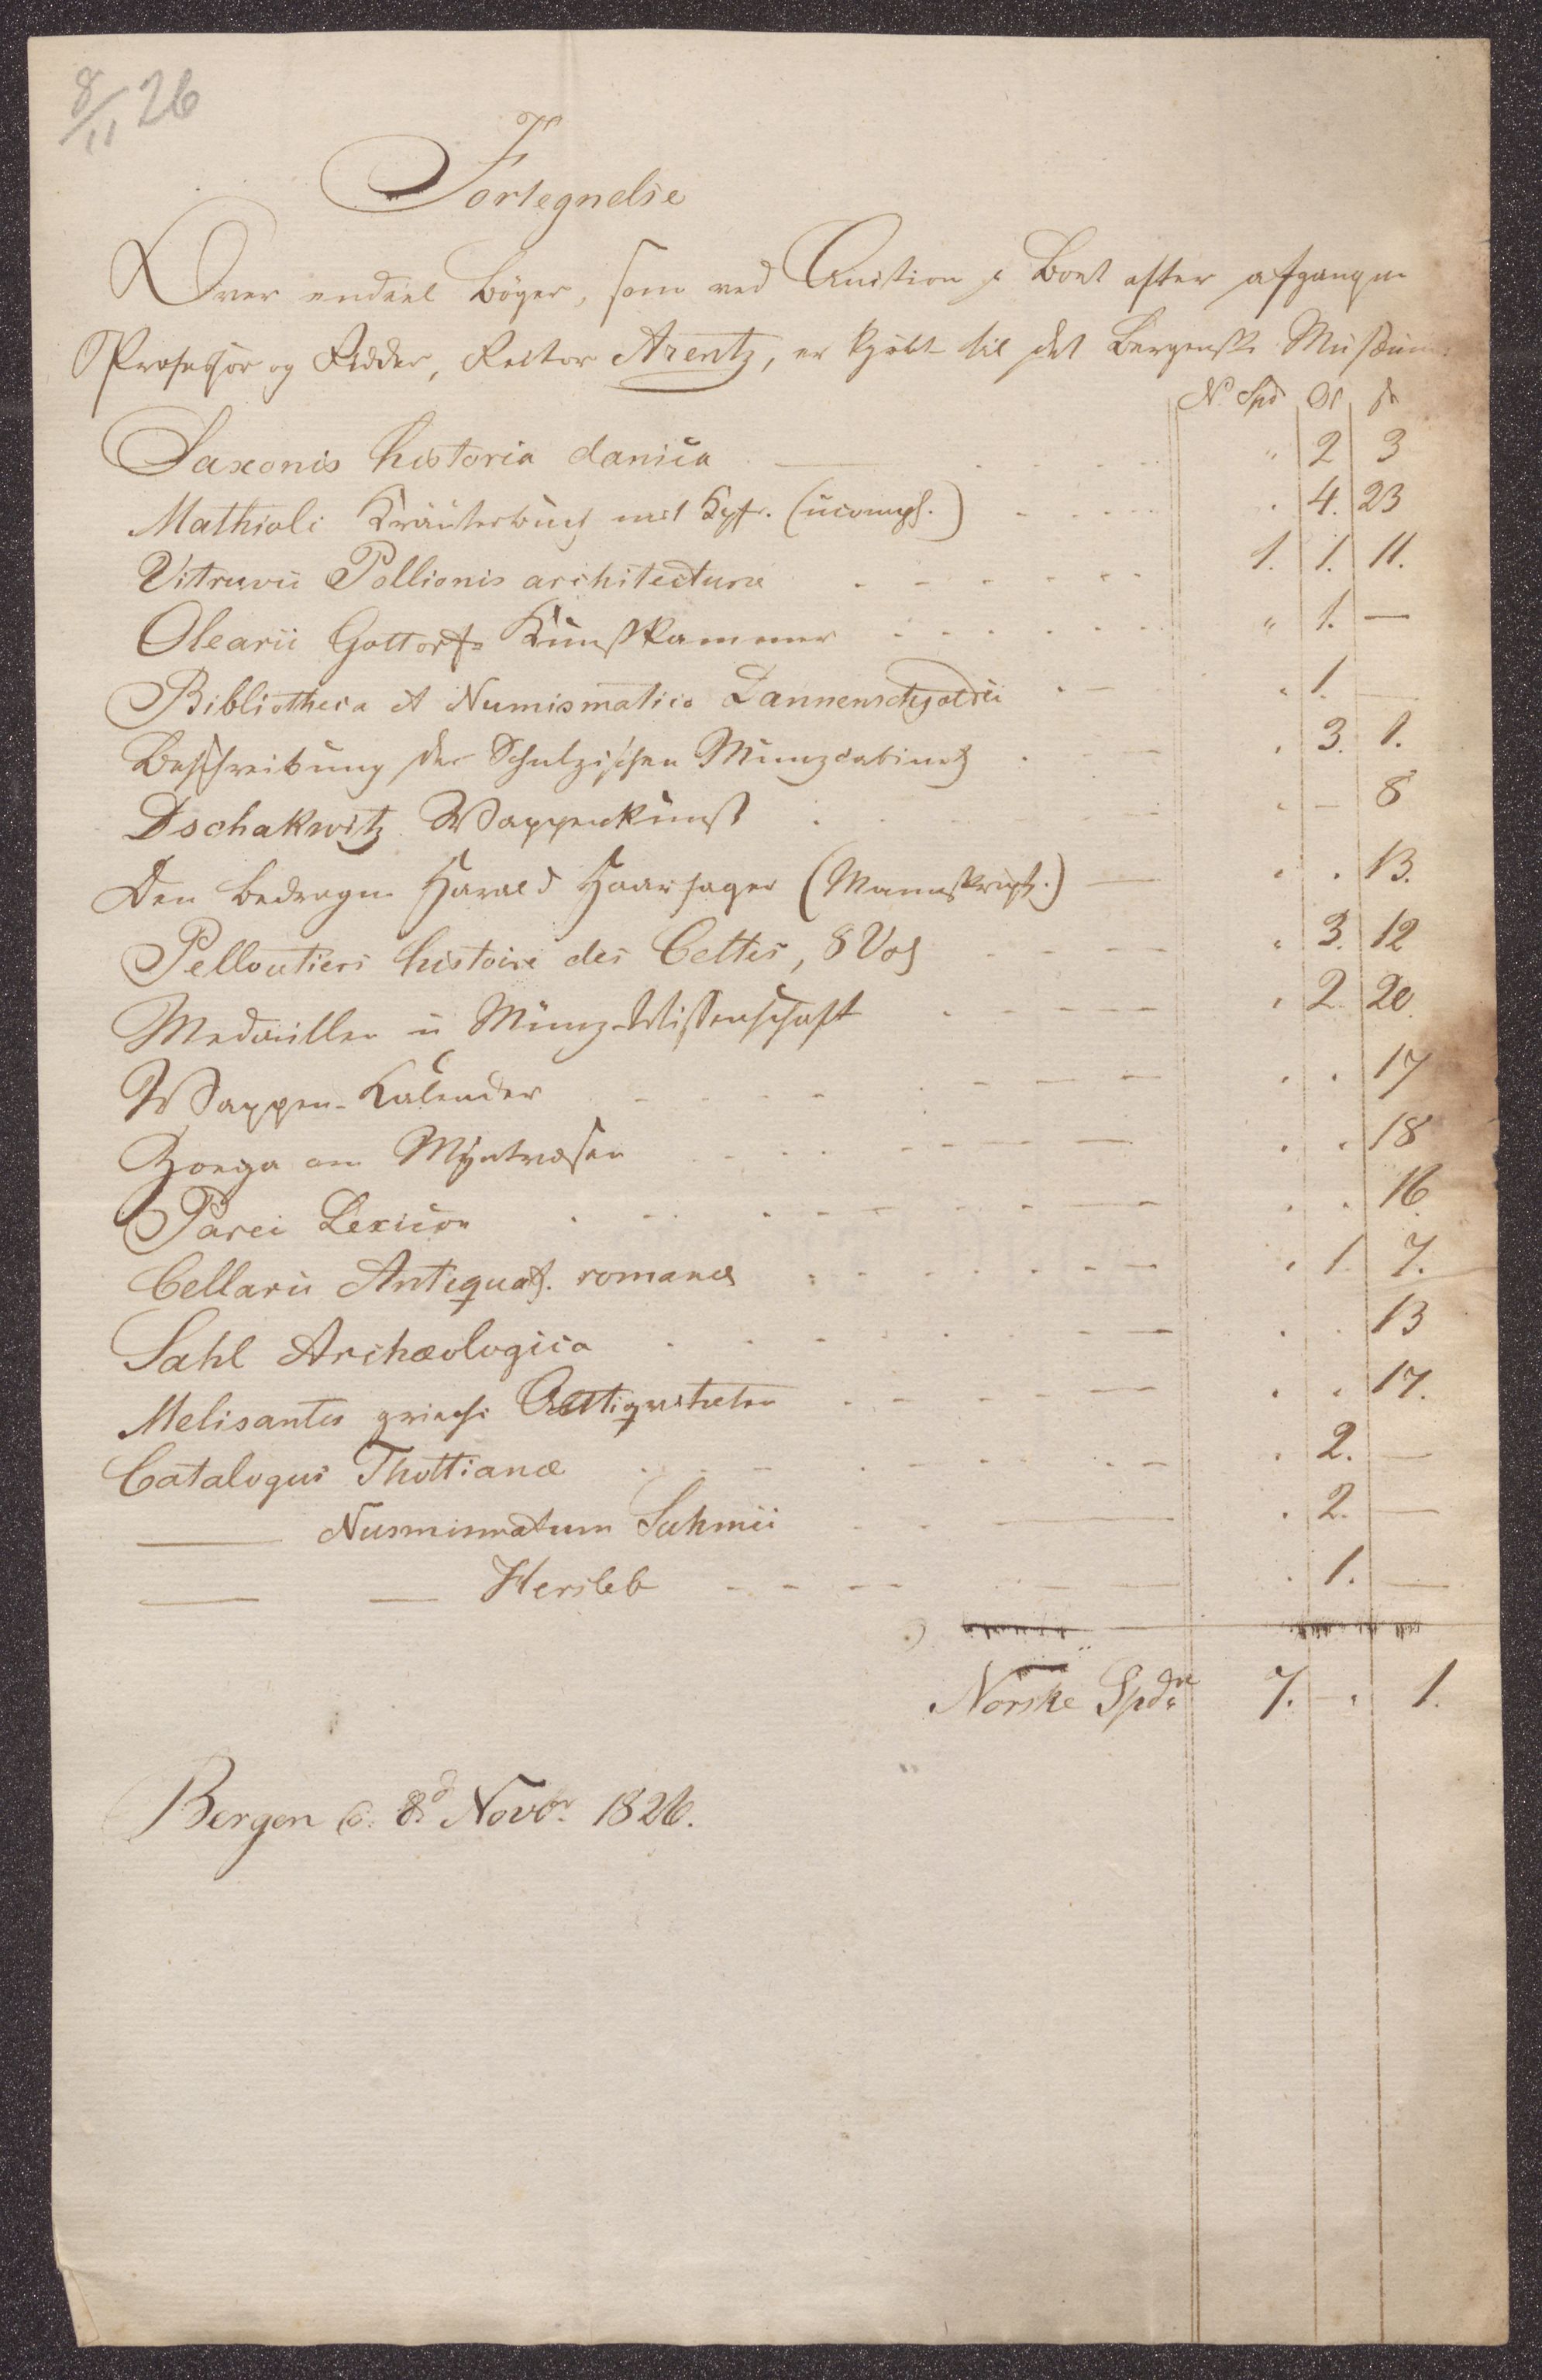 8/11 26
Fortegnelse
Over endeel Bøger, som ved Auction i Boet efter afgangne
Professor og Ridder, Rector Arentz, er kjøbt til det Bergenske Musæum
N. Spd Ort s
Saxonis historia danica " 2 3
Mathioli Kräuterbuch mit Kpfr. (incompl.) . 4. 23
Vitruvii Pollionis architectura 1. 1. 11.
Olearii Gottorfs Kunstkammer " 1. —
Bibliotheca et Numismatica Dannenschjoldii " 1. —
Beschreibung der Schulzischen Münzcabinets . 3. 1.
Dschakwitz Wappenkunst . — 8
Den bedragne Harald Haarfager (Manuskript.) . . 13.
Pelloutiers histoire des Celtes, 8 Vol . 3. 12
Medaillen u Münz-Wissenschaft . 2 20.
Wappen-Kalender . . 17
Zoega om Myntvæsen . . 18
Parei Lexicon . . 16.
Cellarii Antiquat. romanæ . 1. 7.
Sahl Archæologica . . 13
Melisantes griechi Antiquiteten . . 17.
Catalogus Thottianæ . 2. —
—— Nusmismatum Suhmii . 2. —
—— — Hersleb . 1. —
Norske Spdr 7. — " 1.
Bergen d. 8d Novbr. 1826.